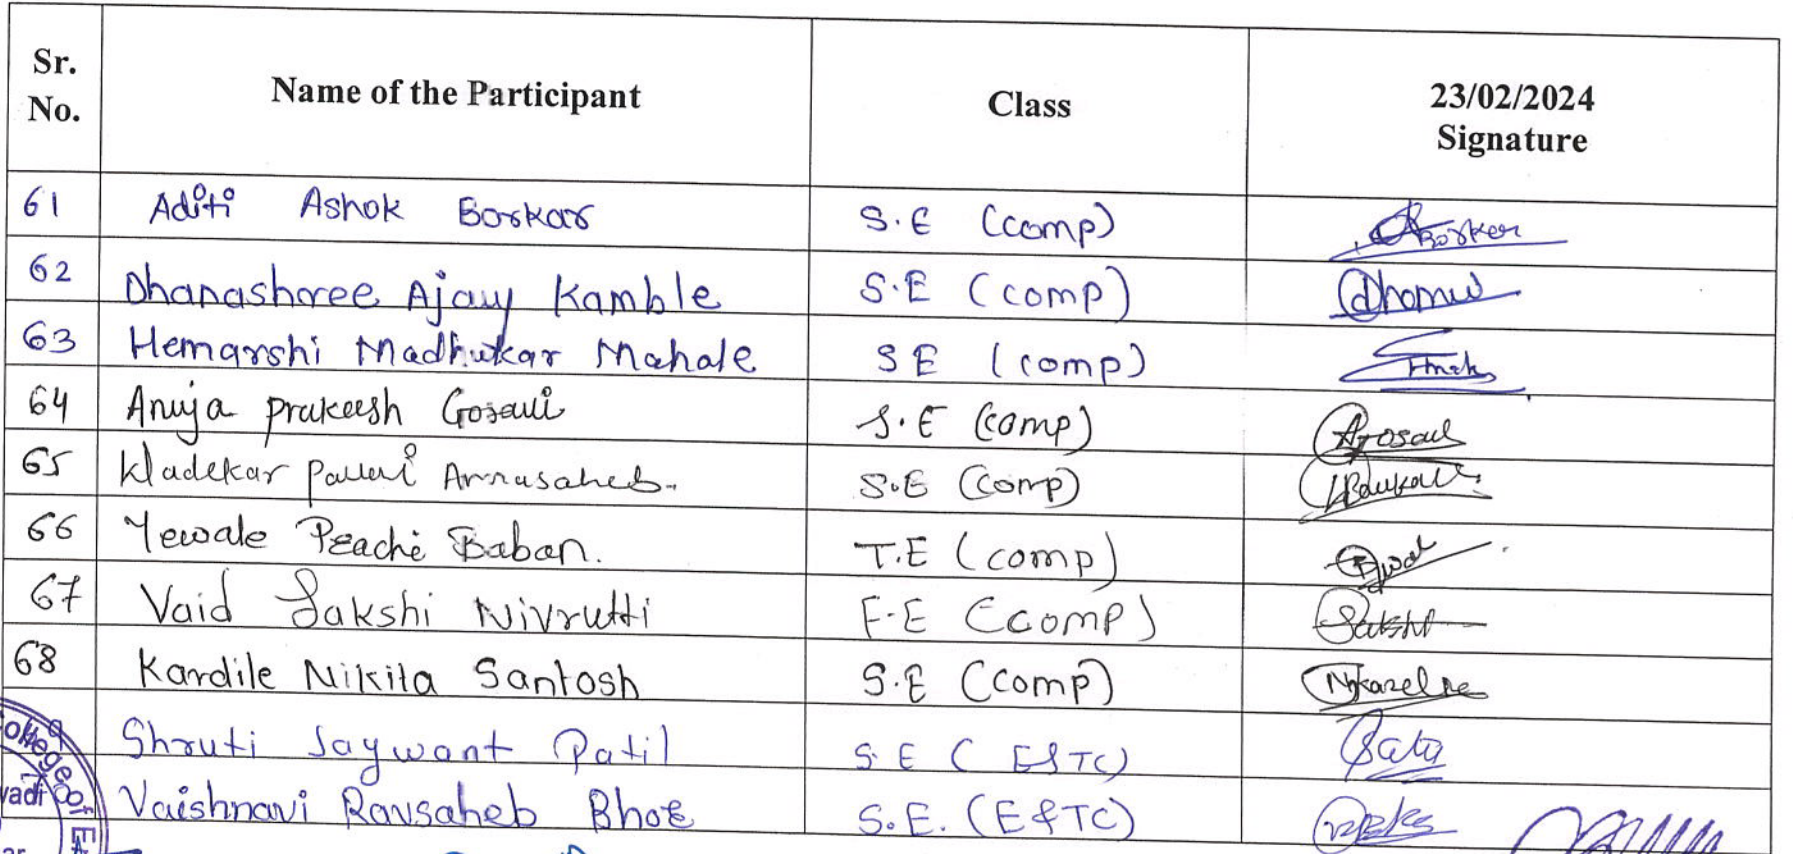 Sr. No. Name of the Participant Class 23/02/2024 Signature
61 Aditi Ashok Borkar S.E (comp) Borkar
62 Dhanashree Ajay Kamble S.E (comp)
63 Hemarshi Madhukar Mahale SE (comp)
64 Anuja prakash Gosavi S.E (comp)
65 Wadekar Annasaheb. S.E (comp)
66 Yewale Baban. T.E (comp)
67 Vaid Sakshi Nivrutti F.E (comp) Sakshi
68 Kardile Nikita Santosh S.E (comp)
Shruti Jaywant Patil S.E (E&TC)
Vaishnavi Ravsaheb Bhot S.E. (E&TC)